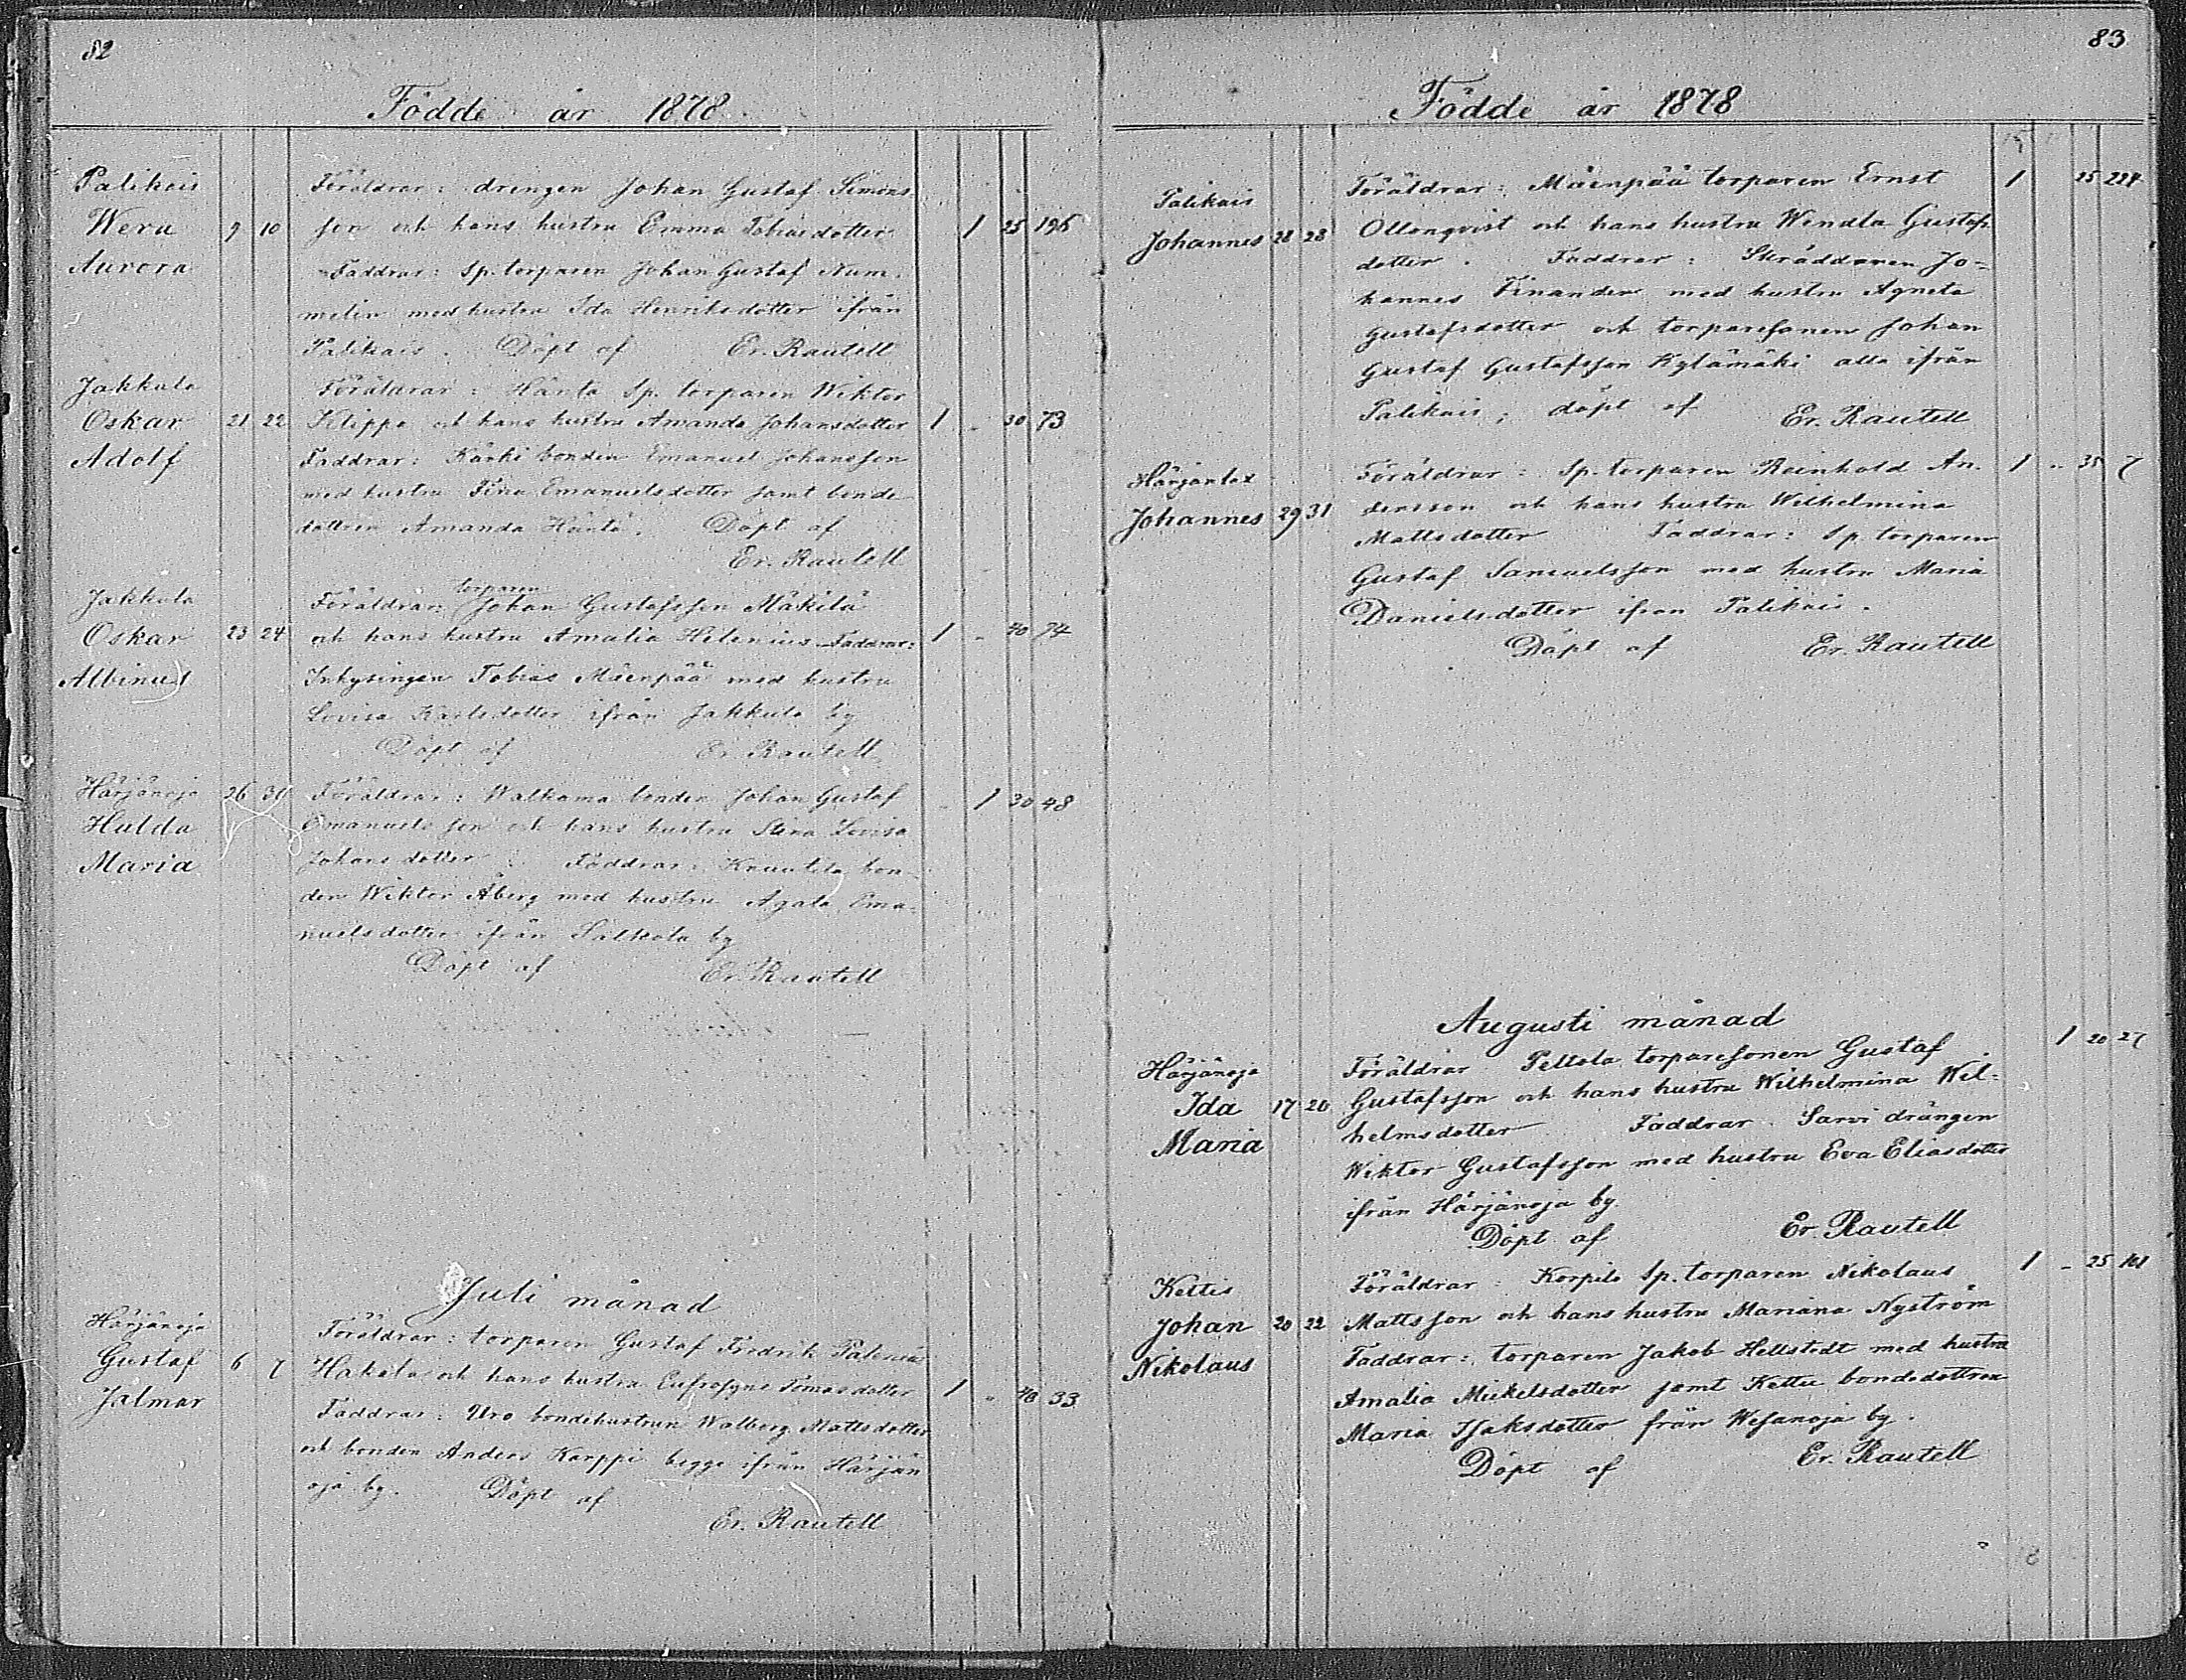 82
Födde år 1878.
Palikais Föräldrar: drengen Johan Gustaf Simons
Wera 9 10 son och hans hustru Emma Tobiasdotter 1 25 196
Aurora Faddrar: Sp. torparen Johan Gustaf Num-
melin med hustru Ida Henriksdotter ifrån
Palikais. Döpt af Er. Rautell
Jakkula Föräldrar: Hänta Sp. torparen Wiktor
Oskar 21 22 Klippa och hans hustru Amanda Johansdotter 1 „ 30 73
Adolf Faddrar: Karki bonden Emanuel Johansson
med hustru Fina Emanuelsdotter samt bonde
dottren Amanda Hänta. Döpt af
Er. Rautell
Jakkula torparen
Föräldrar: Johan Gustafsson Mäkilä
Oskar 23 24 och hans hustru Amalia Helenius Faddrar: 1 „ 40 74
Albinus Inhysingen Tobias Mäenpää med hustru
Lovisa Karlsdotter ifrån Jakkula by
Döpt af Er. Rautell
Härjänoja 26 31 Föräldrar: Walkama bonden Johan Gustaf „ 1 30 48
Hulda Emanuelsson och hans hustru Stina Lovisa
Maria Johansdotter Faddrar: Knuutila bon-
den Wiktor Åberg med hustru Agata Ema-
nuelsdotter ifrån Salkola by
Döpt af Er. Rautell
Juli månad
Härjänoja Föräldrar: torparen Gustaf Fredrik Palenius
Gustaf 6 7 Hakala och hans hustru Eufrosyne Tomasdotter 1 „ 40 33
Jalmar Faddrar: Uro bondehustrun Walberg Mattsdotter
och bonden Anders Karppi begge ifrån Härjän
oja by. Döpt af
Er. Rautell
83
Födde år 1878
Palikais Föräldrar: Mäenpää torparen Ernst 1 25 224
Johannes 28 28 Ollonqvist och hans hustru Wendla Gustafs
dotter. Faddrar: Skräddaren Jo-
hannes Finander med hustru Agneta
Gustafsdotter och torparesonen Johan
Gustaf Gustafsson Kylämäki alla ifrån
Palikais; döpt af Er. Rautell
Härjanlax Föräldrar: Sp. torparen Reinhold An- 1 „ 35 7
Johannes 29 31 dersson och hans hustru Wilhelmina
Mattsdotter Faddrar: Sp. torparen
Gustaf Samuelsson med hustru Maria
Danielsdotter ifrån Palikais.
Döpt af Er. Rautell
Augusti månad
Härjänoja Föräldrar Peltola torparesonen Gustaf 1 20 27
Ida 17 20 Gustafsson och hans hustru Wilhelmina Wil-
Maria helmsdotter Faddrar Sarvi drängen
Wiktor Gustafsson med hustru Eva Eliasdotter
ifrån Härjänoja by.
Döpt af Er. Rautell
Kettis Föräldrar: Korpila Sp. torparen Nikolaus 1 „ 25 101
Johan 20 22 Mattsson och hans hustru Mariana Nyström
Nikolaus Faddrar: torparen Jakob Hellstedt med hustru
Amalia Mickelsdotter samt Kettu bondedottren
Maria Isaksdotter från Wesanoja by.
Döpt af Er. Rautell